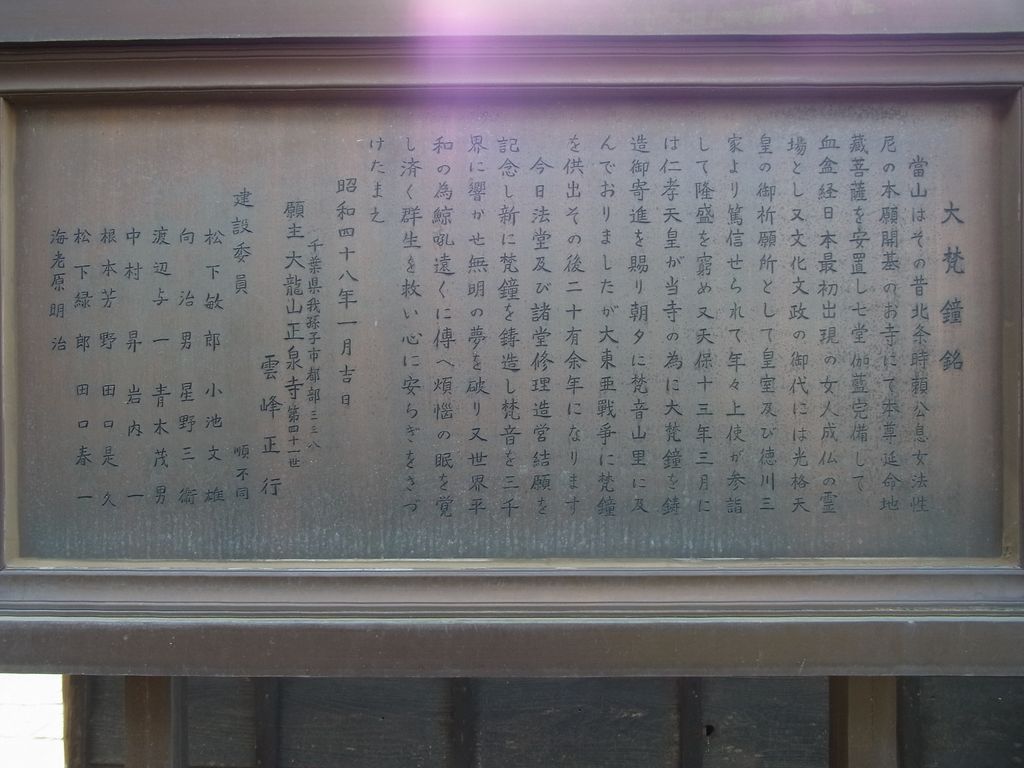 大梵鐘銘
當山はその昔北条時頼公息女法性
尼の本願開基のお寺にて本尊延命地
蔵菩薩を安置し七堂伽藍完備して
血盆経日本最初出現の女人成仏の霊
場とし又文化文政の御代には光格天
皇の御祈願所として皇室及び徳川三
家より篤信せられて年々上使が参詣
して隆盛を窮め又天保十三年三月に
は仁孝天皇が当寺の為に大梵鐘を鋳
造御寄進を賜り朝夕に梵音山里に及
んでおりましたが大東亜戦争に梵鐘
を供出その後二十有余年になります
今日法堂及び諸堂修理造営結願を
記念し新に梵鐘を鋳造し梵音を三千
界に響かせ無明の夢を破り又世界平
和の為鯨吼遠くに傳へ煩悩の眠を覚
し済く群生を救い心に安らぎをさづ
けたまえ
昭和四十八年一月吉日
千葉県我孫子市都部三三八
願主大龍山正泉寺第四十一世
雲峰正行
建設委員 順不同
松下敏郎 小池文雄
向治男 星野三衞
渡辺与一 青木茂男
中村昇 岩内一
根本芳野 田口是久
松下緑郎 田口春一
海老原明治